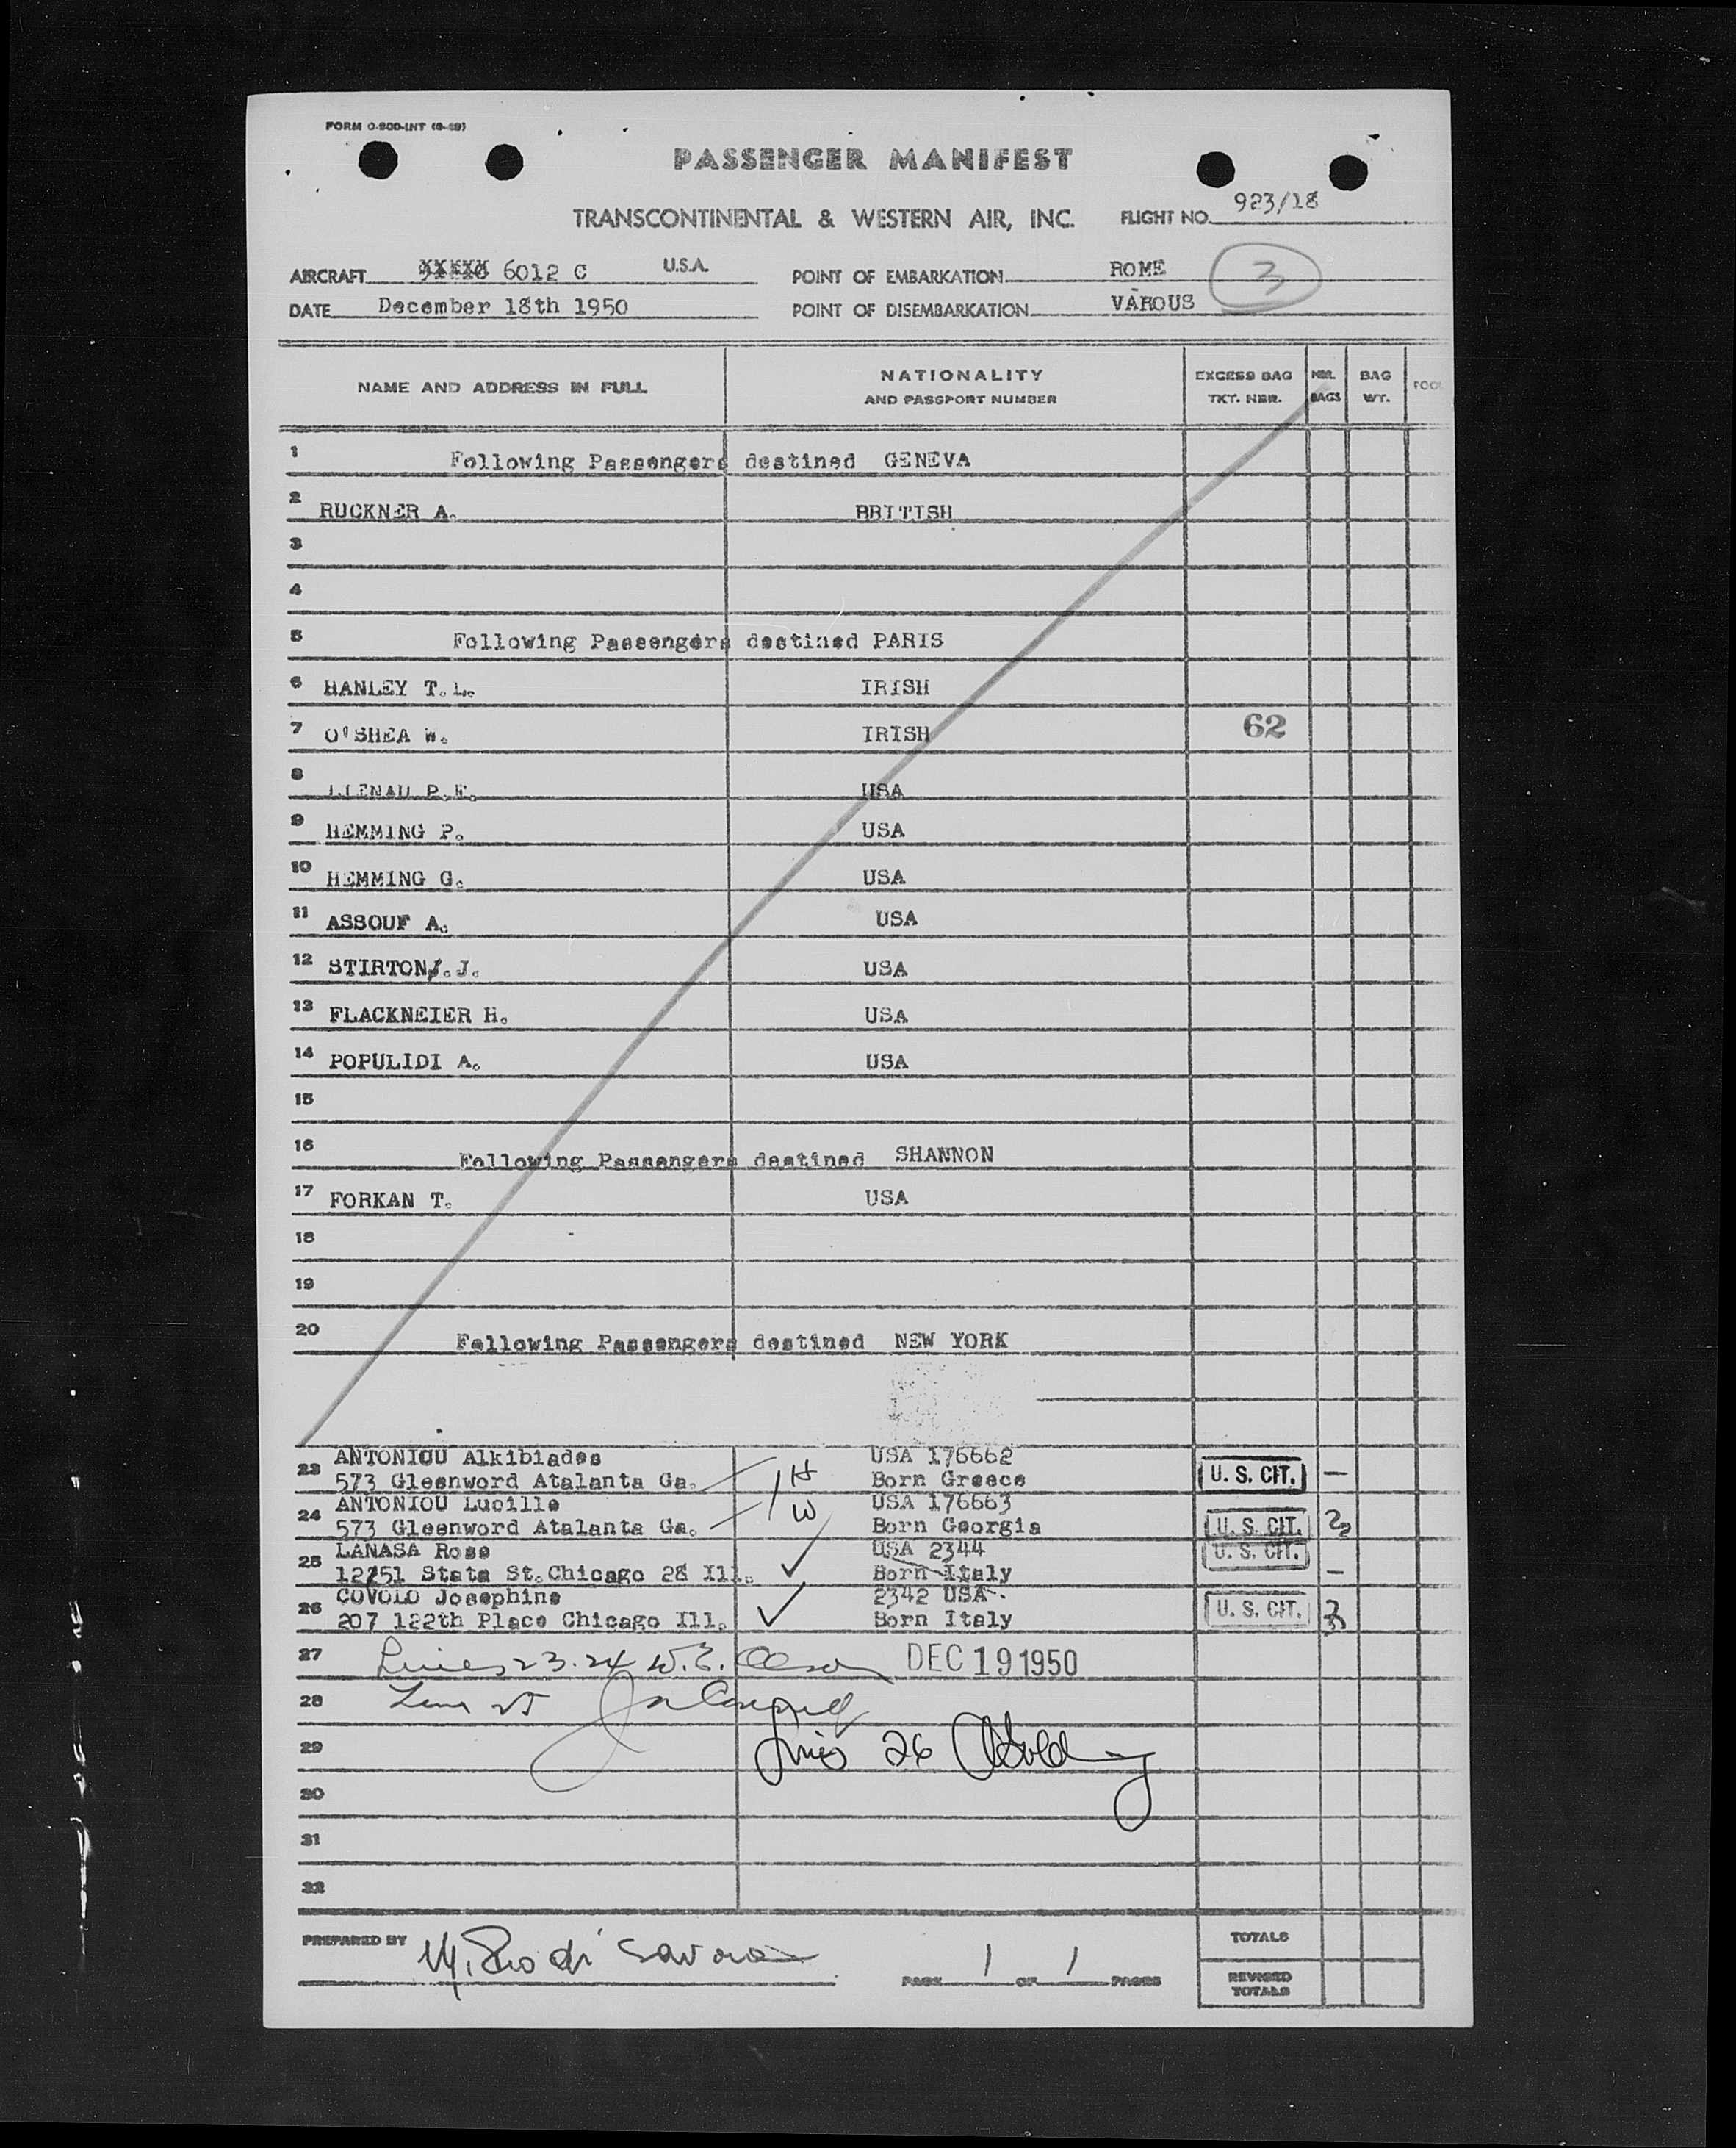 FORM O-800-INT (8-49)
PASSENGER MANIFEST
TRANSCONTINENTAL & WESTERN AIR, INC. FLIGHT NO. 923/18
AIRCRAFT 6012 C U.S.A. POINT OF EMBARKATION ROME 3
DATE December 18th 1950 POINT OF DISEMBARKATION VAROUS
NAME AND ADDRESS IN FULL NATIONALITY AND PASSPORT NUMBER EXCESS BAG TKT. NBR. NBR. BAGS BAG WT.
1 Following Passengers destined GENEVA
2 RUCKNER A. BRITISH
3
4
5 Following Passengers destined PARIS
6 HANLEY T.L. IRISH
7 O'SHEA W. IRISH 62
8 LIENAU P.W. USA
9 HEMMING P. USA
10 HEMMING G. USA
11 ASSOUF A. USA
12 STIRTON J. USA
13 FLACKNEIER H. USA
14 POPULIDI A. USA
15
16 Following Passengers destined SHANNON
17 FORKAN T. USA
18
19
20 Following Passengers destined NEW YORK
ANTONIOU Alkibiades USA 176662
23 573 Gleenword Atalanta Ga. H Born Greece U. S. CIT. —
ANTONIOU Lucille USA 176663
24 573 Gleenword Atalanta Ga. W Born Georgia U. S. CIT. 2
LANASA Rose USA 2344 U. S. CIT.
25 12151 State St. Chicago 28 Ill. Born Italy —
COVOLO Josephine 2342 USA
26 207 122th Place Chicago Ill. Born Italy U. S. CIT. 3
27 Lines 23.24 W.E. Olson DEC 19 1950
28 Line 25
29 Lines 26
30
31
32
PREPARED BY M. di Savoia PAGE 1 OF 1 PAGES
TOTALS
REVISED TOTALS